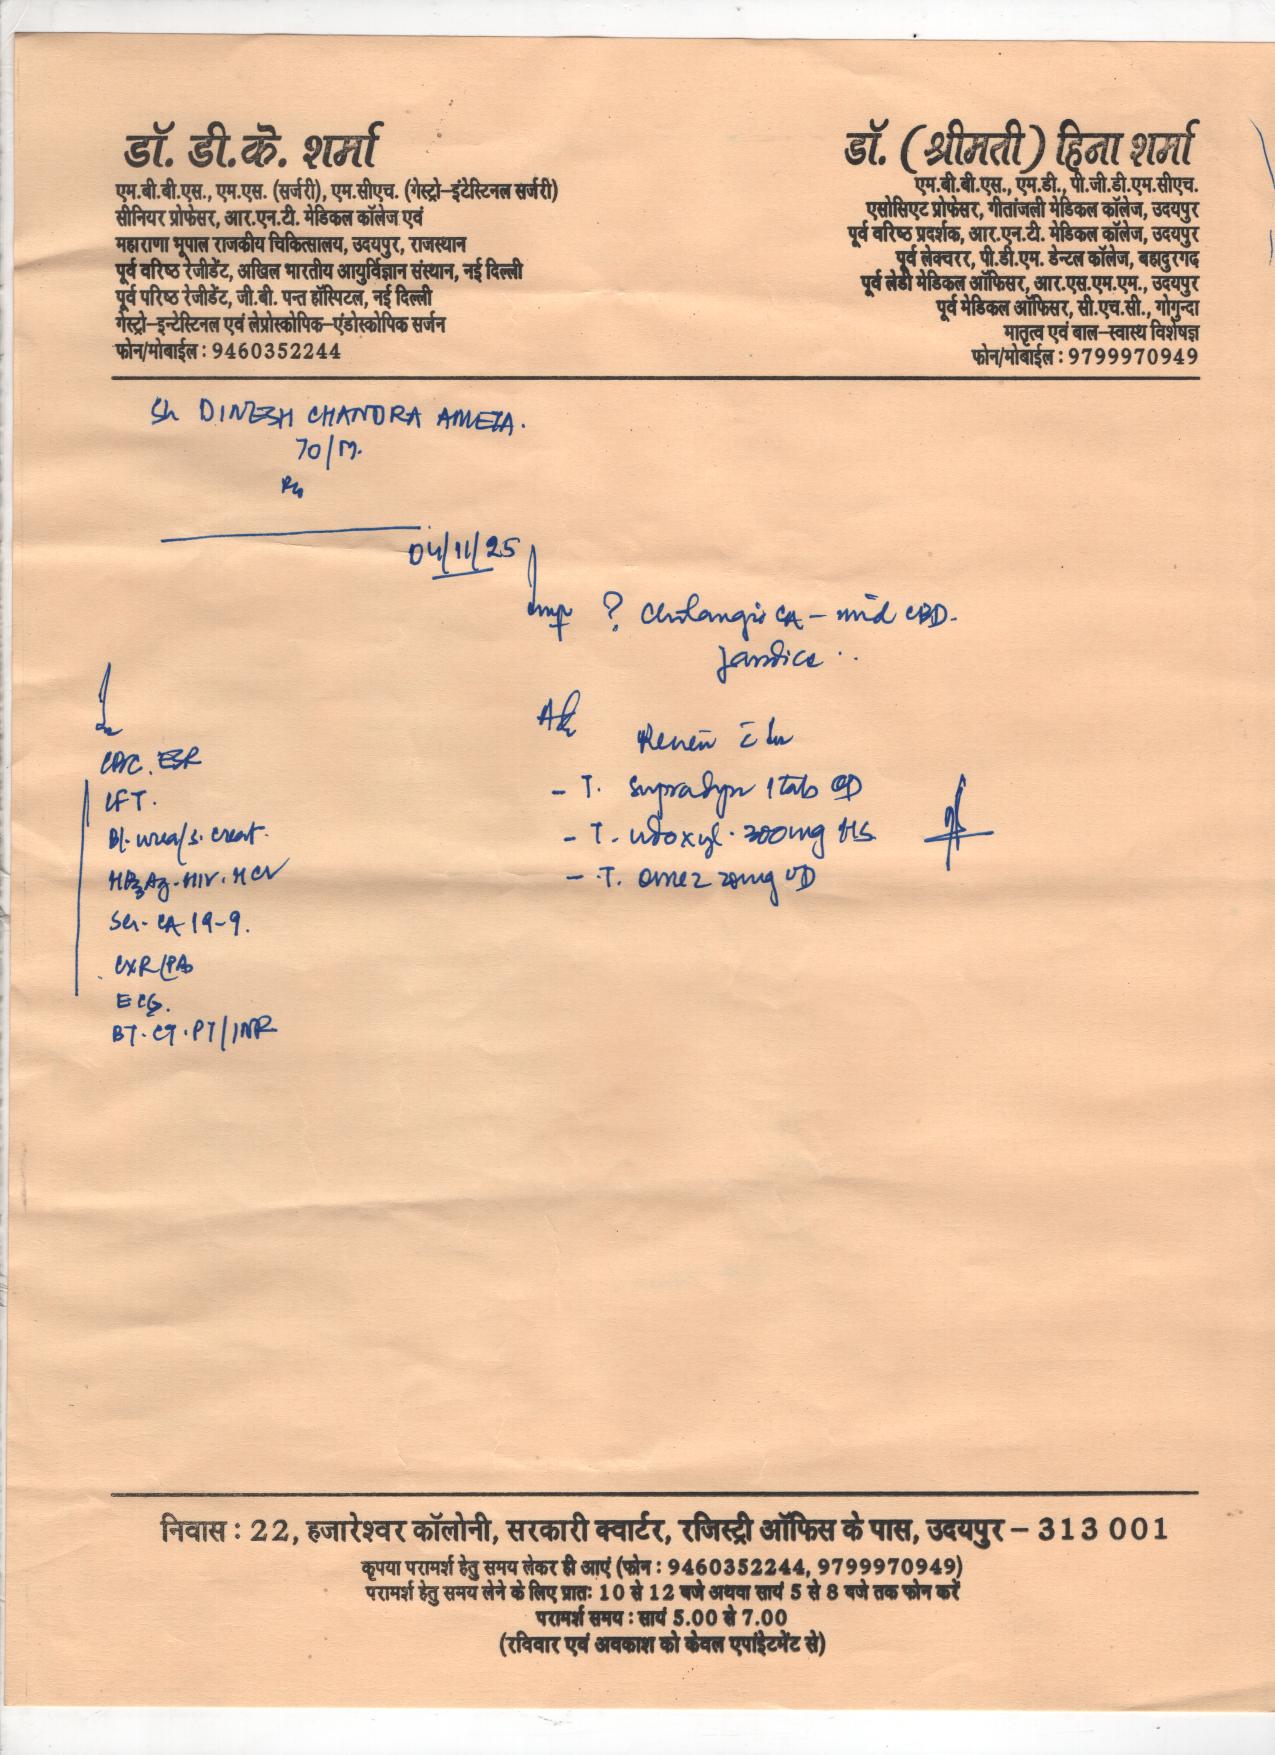 डॉ. डी.के. शर्मा
एम.बी.बी.एस., एम.एस. (सर्जरी), एम.सीएच. (गेस्ट्रो-इंटेस्टिनल सर्जरी)
सीनियर प्रोफेसर, आर.एन.टी. मेडिकल कॉलेज एवं
महाराणा भूपाल राजकीय चिकित्सालय, उदयपुर, राजस्थान
पूर्व वरिष्ठ रेजीडेंट, अखिल भारतीय आयुर्विज्ञान संस्थान, नई दिल्ली
पूर्व परिष्ठ रेजीडेंट, जी.बी. पन्त हॉस्पिटल, नई दिल्ली
गेस्ट्रो-इन्टेस्टिनल एवं लेप्रोस्कोपिक-एंडोस्कोपिक सर्जन
फोन/मोबाईल : 9460352244
डॉ. (श्रीमती) हिना शर्मा
एम.बी.बी.एस., एम.डी., पी.जी.डी.एम.सीएच.
एसोसिएट प्रोफेसर, गीतांजली मेडिकल कॉलेज, उदयपुर
पूर्व वरिष्ठ प्रदर्शक, आर.एन.टी. मेडिकल कॉलेज, उदयपुर
पूर्व लेक्चरर, पी.डी.एम. डेन्टल कॉलेज, बहादुरगढ
पूर्व लेडी मेडिकल ऑफिसर, आर.एस.एम.एम., उदयपुर
पूर्व मेडिकल ऑफिसर, सी.एच.सी., गोगुन्दा
मातृत्व एवं बाल-स्वास्थ विशेषज्ञ
फोन/मोबाईल : 9799970949
Sh DINESH CHANDRA AMETA.
70/M.
04/11/25
Imp ? Cholangio CA - mid CBD.
Jaundice
CBC. ESR
LFT.
Bl. urea/s. creat.
HBsAg. HIV. HCV
Ser. CA 19-9.
CXR/PA
ECG.
BT. CT. PT/INR
Adv
Review c̄ Inv
- T. Supradyn 1 tab OD
- T. udoxyl. 300mg HS
- T. omez 20mg OD
निवास : 22, हजारेश्वर कॉलोनी, सरकारी क्वार्टर, रजिस्ट्री ऑफिस के पास, उदयपुर - 313 001
कृपया परामर्श हेतु समय लेकर ही आएं (फोन : 9460352244, 9799970949)
परामर्श हेतु समय लेने के लिए प्रातः 10 से 12 बजे अथवा सायं 5 से 8 बजे तक फोन करें
परामर्श समय : सायं 5.00 से 7.00
(रविवार एवं अवकाश को केवल एपांइटमेंट से)